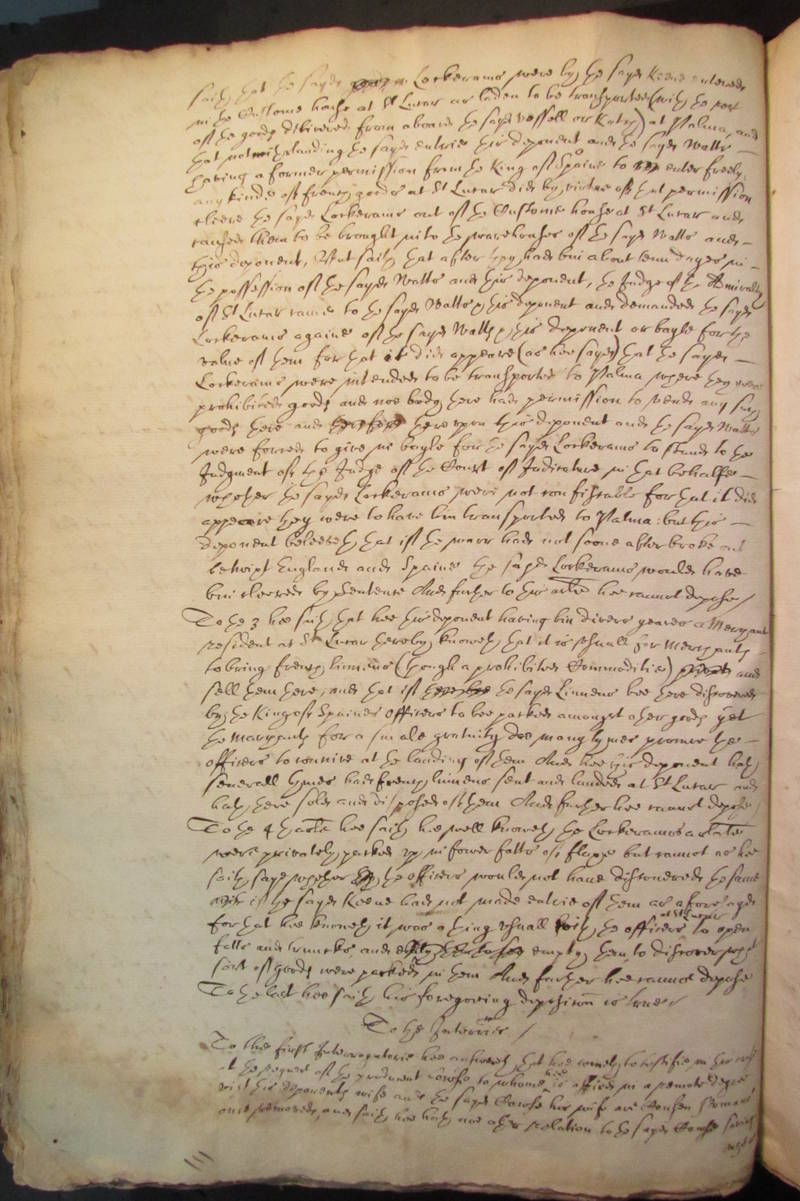 saith that the sayd Lockerams were by the sayd Keene entered
in the Custome house at St Lucar as laden to be transported (with the rest
of the goods delivered from aboard the sayd vessell or Ketch) at Palma, and
that notwithstanding the sayd entrie this deponent and the sayd Watts
having a former permission from the King of Spaine to enter freely
any kinde of french goods at St Lucar did by virtue of that permission
cleere the sayd Lockerams out of the Custome house at St Lucar and
caused them to be brought into the warehouses of the sayd Watts and
this deponent, But saith that after they had bin about tenn dayes in
the possession of the sayd Watts and this deponent, the Judge of the Admiralty
of St Lucar came to the sayd Watts & this deponent and demanded the sayd
Lockerams againe of the sayd Watts & this deponent or bayle for the
value of them for that it did appeare (as hee sayd) that the sayd
Lockerams were intended to be transported to Palma where they were
prohibited goods and noe body there had permission to vend any such
goods there and hereupon this deponent and the sayd Watts
were forced to give in bayle for the sayd Lockerams to stand to the
Judgment of the Judge of the Court of Judicature in that behalfe
whether the sayd Lockerams were not confiscable for that it did
appeare they were to have bin transported to Palma: but this
deponent beleeveth that if the warr had not soone after broke out
betwixt England and Spaine the sayd Lockerams would have
bin cleered by sentence And further to this arlie hee cannot depose/
To the 3 hee saith that hee this deponent having bin divers yeares a Merchant
resident at St Lucar thereby knoweth that it is usuall for Merchants
to bring french linnens (though a prohibited Commoditie) and
sell them there, and that if the sayd Linnens bee there discovered
by the King of Spaines Officers to bee packed amongst other goods yet
the Marchants for a smale gratuity doe many tymes procure the
officers to connive at the landing of them And hee this deponent hath
severall tymes had french linnens sent and landed at St Lucar and
hath there sold and disposed of them And further hee cannot depose/
To the 4th arlie hee saith hee well knoweth the Lockerams arlate
were privately packed up in fower fatts of flaxe but cannot as hee
saith say whether the officers would not have discovered the same
if the sayd Keene had not made entrie of them as aforesayd
for that hee knoweth it was a thing usuall with the officers at St Lucar to open
fatts and truncks and empty them, to discover what
sort of goods were packed in them And further hee cannot depose
To the last hee saith his foregoeing deposition is true/
To the Interries /
To the first Interrogatorie hee answereth, that hee cometh to testifie in this cause
at the request of the producent Cowse to whome hee is allyed in a remote degree
vizt this deponents wife and the sayd Cowse his wife are Cousen Germans
once removed, and saith hee hath noe other relation to the sayd Cowse saving